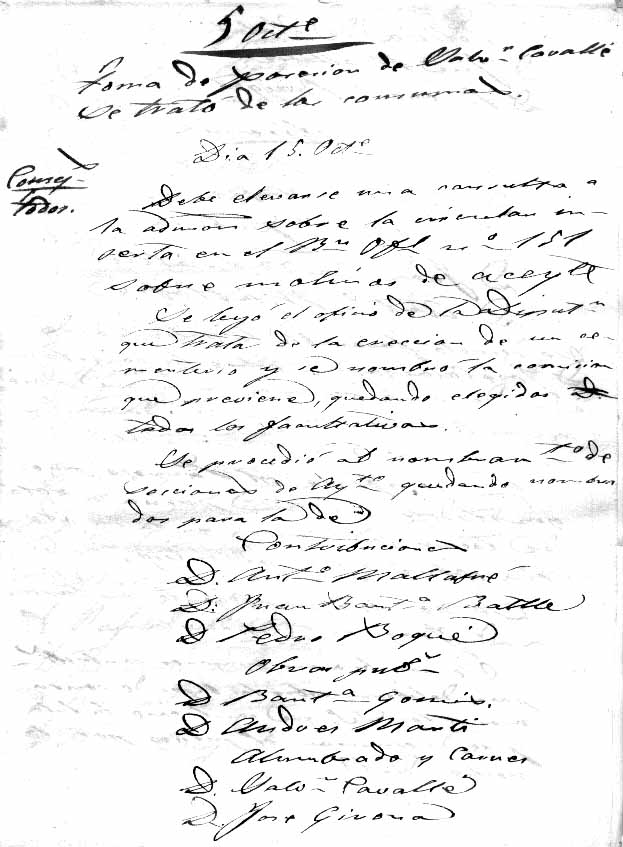 5 Octe
Toma de posesion de Salvn Cavallé
Se trató de los consumos.
Dia 15. Octe
Consej
todos.
Debe elevarse una consulta a
la admon sobre la circular in-
serta en el Bn Ofl no 151
sobre molinos de aceyte
Se leyó el oficio de la Diputn
que trata de la ereccion de un ce-
menterio y se nombró la comision
que previene, quedando elegidos D.
todos los facultativos.
Se procedió al nombramto de
secciones de Ayto quedando nombra
dos para la de
Contribuciones
D. Anto Mallafré
D. Juan Bauta Batlle
D Pedro Boqué
Obras pubs
D Bauta Gomis.
D Andres Marti
Alumbrado y Carnes
D. Salvn Cavallé
D. Jose Girona